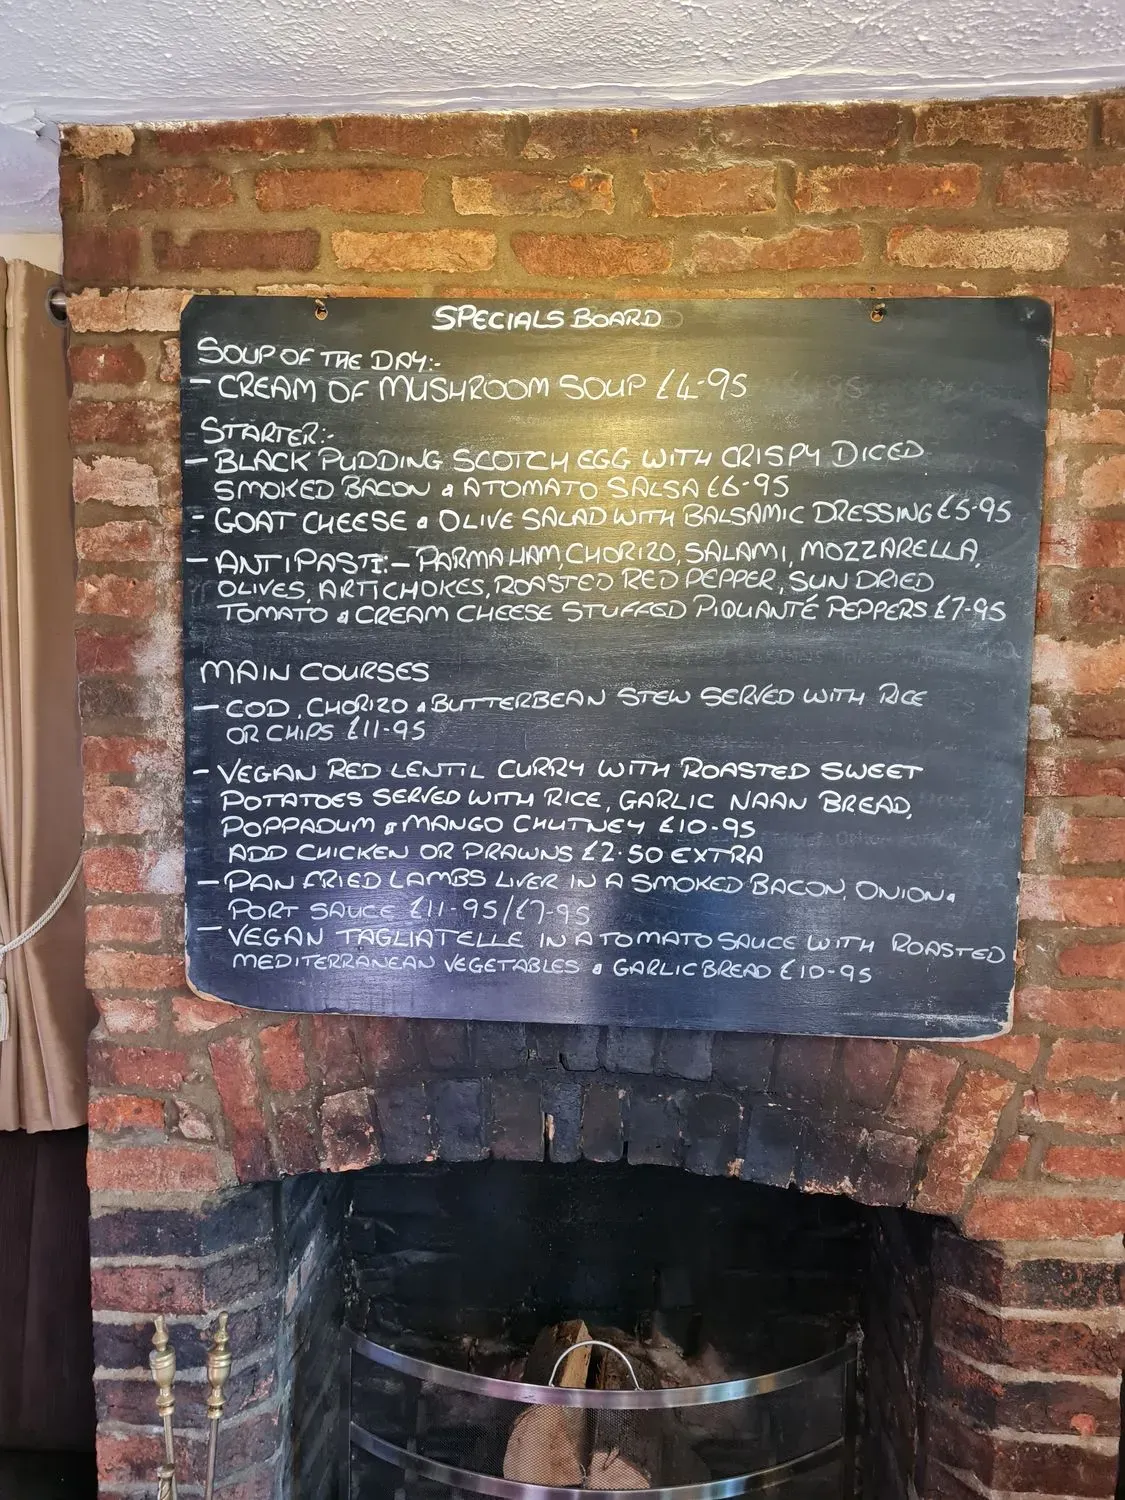 SPECIALS BOARD
SOUP OF THE DAY:-
- CREAM OF MUSHROOM SOUP £4-95
STARTER:-
- BLACK PUDDING SCOTCH EGG WITH CRISPY DICED
SMOKED BACON & A TOMATO SALSA £6-95
- GOAT CHEESE & OLIVE SALAD WITH BALSAMIC DRESSING £5-95
- ANTIPASTI:- PARMA HAM, CHORIZO, SALAMI, MOZZARELLA,
OLIVES, ARTICHOKES, ROASTED RED PEPPER, SUN DRIED
TOMATO & CREAM CHEESE STUFFED PIQUANTÉ PEPPERS £7-95
MAIN COURSES
- COD, CHORIZO & BUTTERBEAN STEW SERVED WITH RICE
OR CHIPS £11-95
- VEGAN RED LENTIL CURRY WITH ROASTED SWEET
POTATOES SERVED WITH RICE, GARLIC NAAN BREAD,
POPPADUM & MANGO CHUTNEY £10-95
ADD CHICKEN OR PRAWNS £2.50 EXTRA
- PAN FRIED LAMBS LIVER IN A SMOKED BACON, ONION &
PORT SAUCE £11-95/£7-95
- VEGAN TAGLIATELLE IN A TOMATO SAUCE WITH ROASTED
MEDITERRANEAN VEGETABLES & GARLIC BREAD £10-95